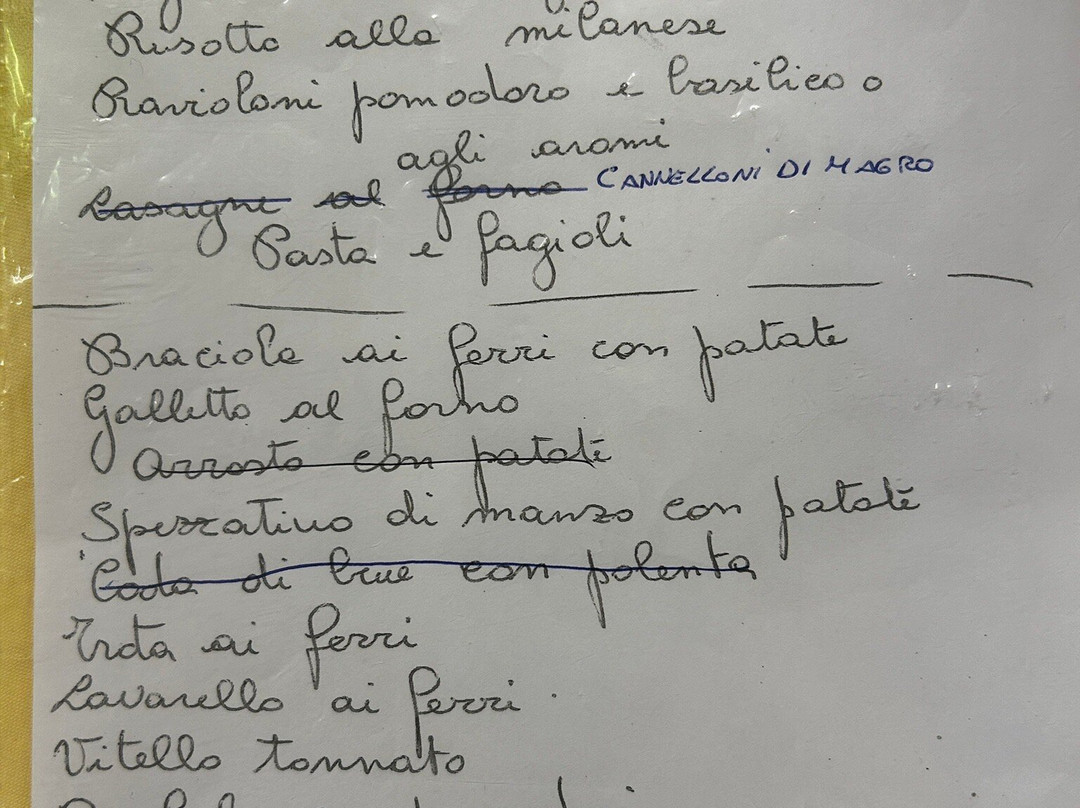 Risotto alla milanese
Ravioloni pomodoro e basilico o
agli aromi
Lasagne al forno CANNELLONI DI MAGRO
Pasta e fagioli
Braciola ai ferri con patate
Galletto al forno
Arrosto con patate
Spezzatino di manzo con patate
Coda di bue con polenta
Trota ai ferri
Lavarello ai ferri
Vitello tonnato